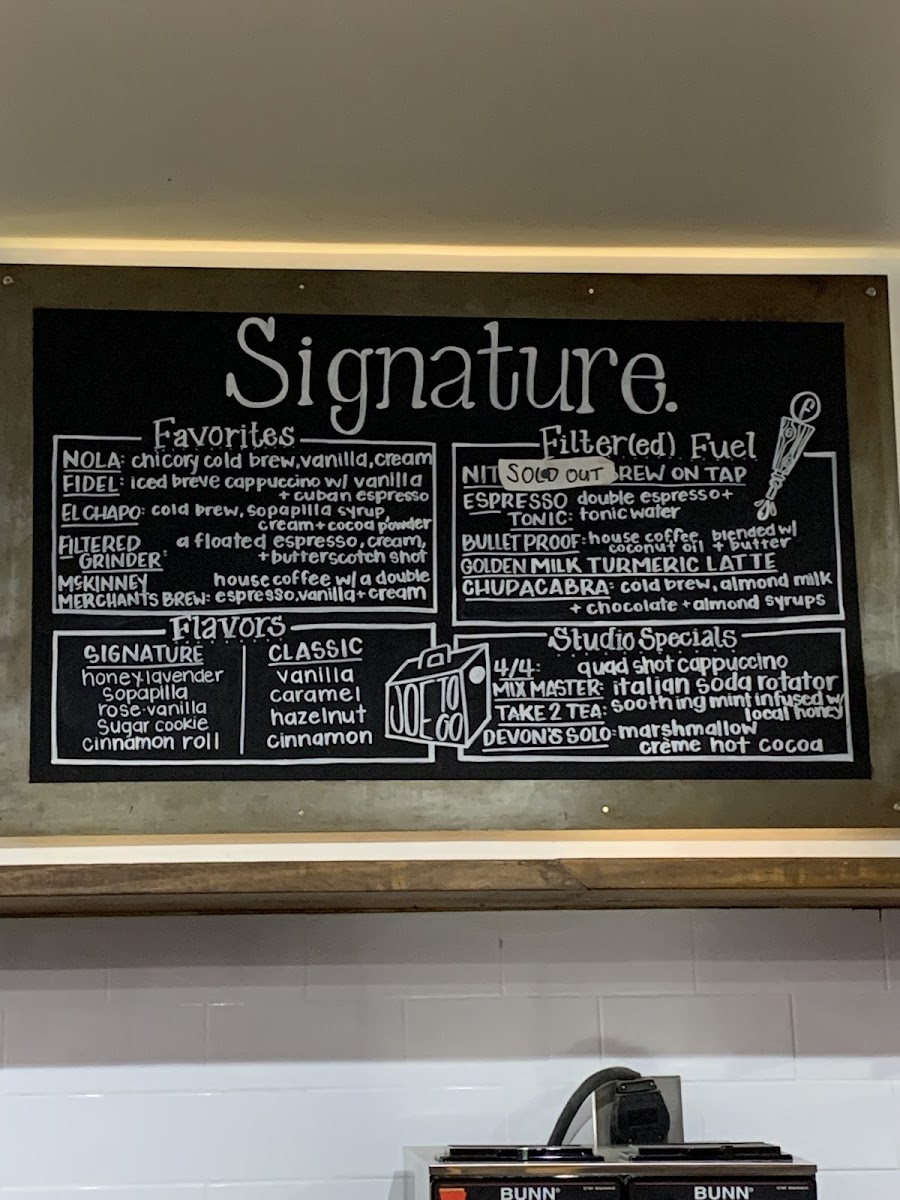 Signature.
Favorites
NOLA: chicory cold brew, vanilla, cream
FIDEL: iced breve cappuccino w/ vanilla
+ cuban espresso
EL CHAPO: cold brew, sopapilla syrup,
cream + cocoa powder
FILTERED a floated espresso, cream,
GRINDER: + butterscotch shot
McKINNEY house coffee w/ a double
MERCHANTS BREW: espresso, vanilla + cream
Filter(ed) Fuel
NIT SOLD OUT BREW ON TAP
ESPRESSO double espresso +
TONIC: tonic water
BULLET PROOF: house coffee blended w/
coconut oil + butter
GOLDEN MILK TURMERIC LATTE
CHUPACABRA: cold brew, almond milk
+ chocolate + almond syrups
Flavors
SIGNATURE
honey lavender
sopapilla
rose-vanilla
Sugar cookie
cinnamon roll
CLASSIC
vanilla
caramel
hazelnut
cinnamon
JOE TO
GO
Studio Specials
4/4: quad shot cappuccino
MIX MASTER: italian soda rotator
TAKE 2 TEA: soothing mint infused w/
local honey
DEVON'S SOLO: marshmallow
crème hot cocoa
f
BUNN
BUNN